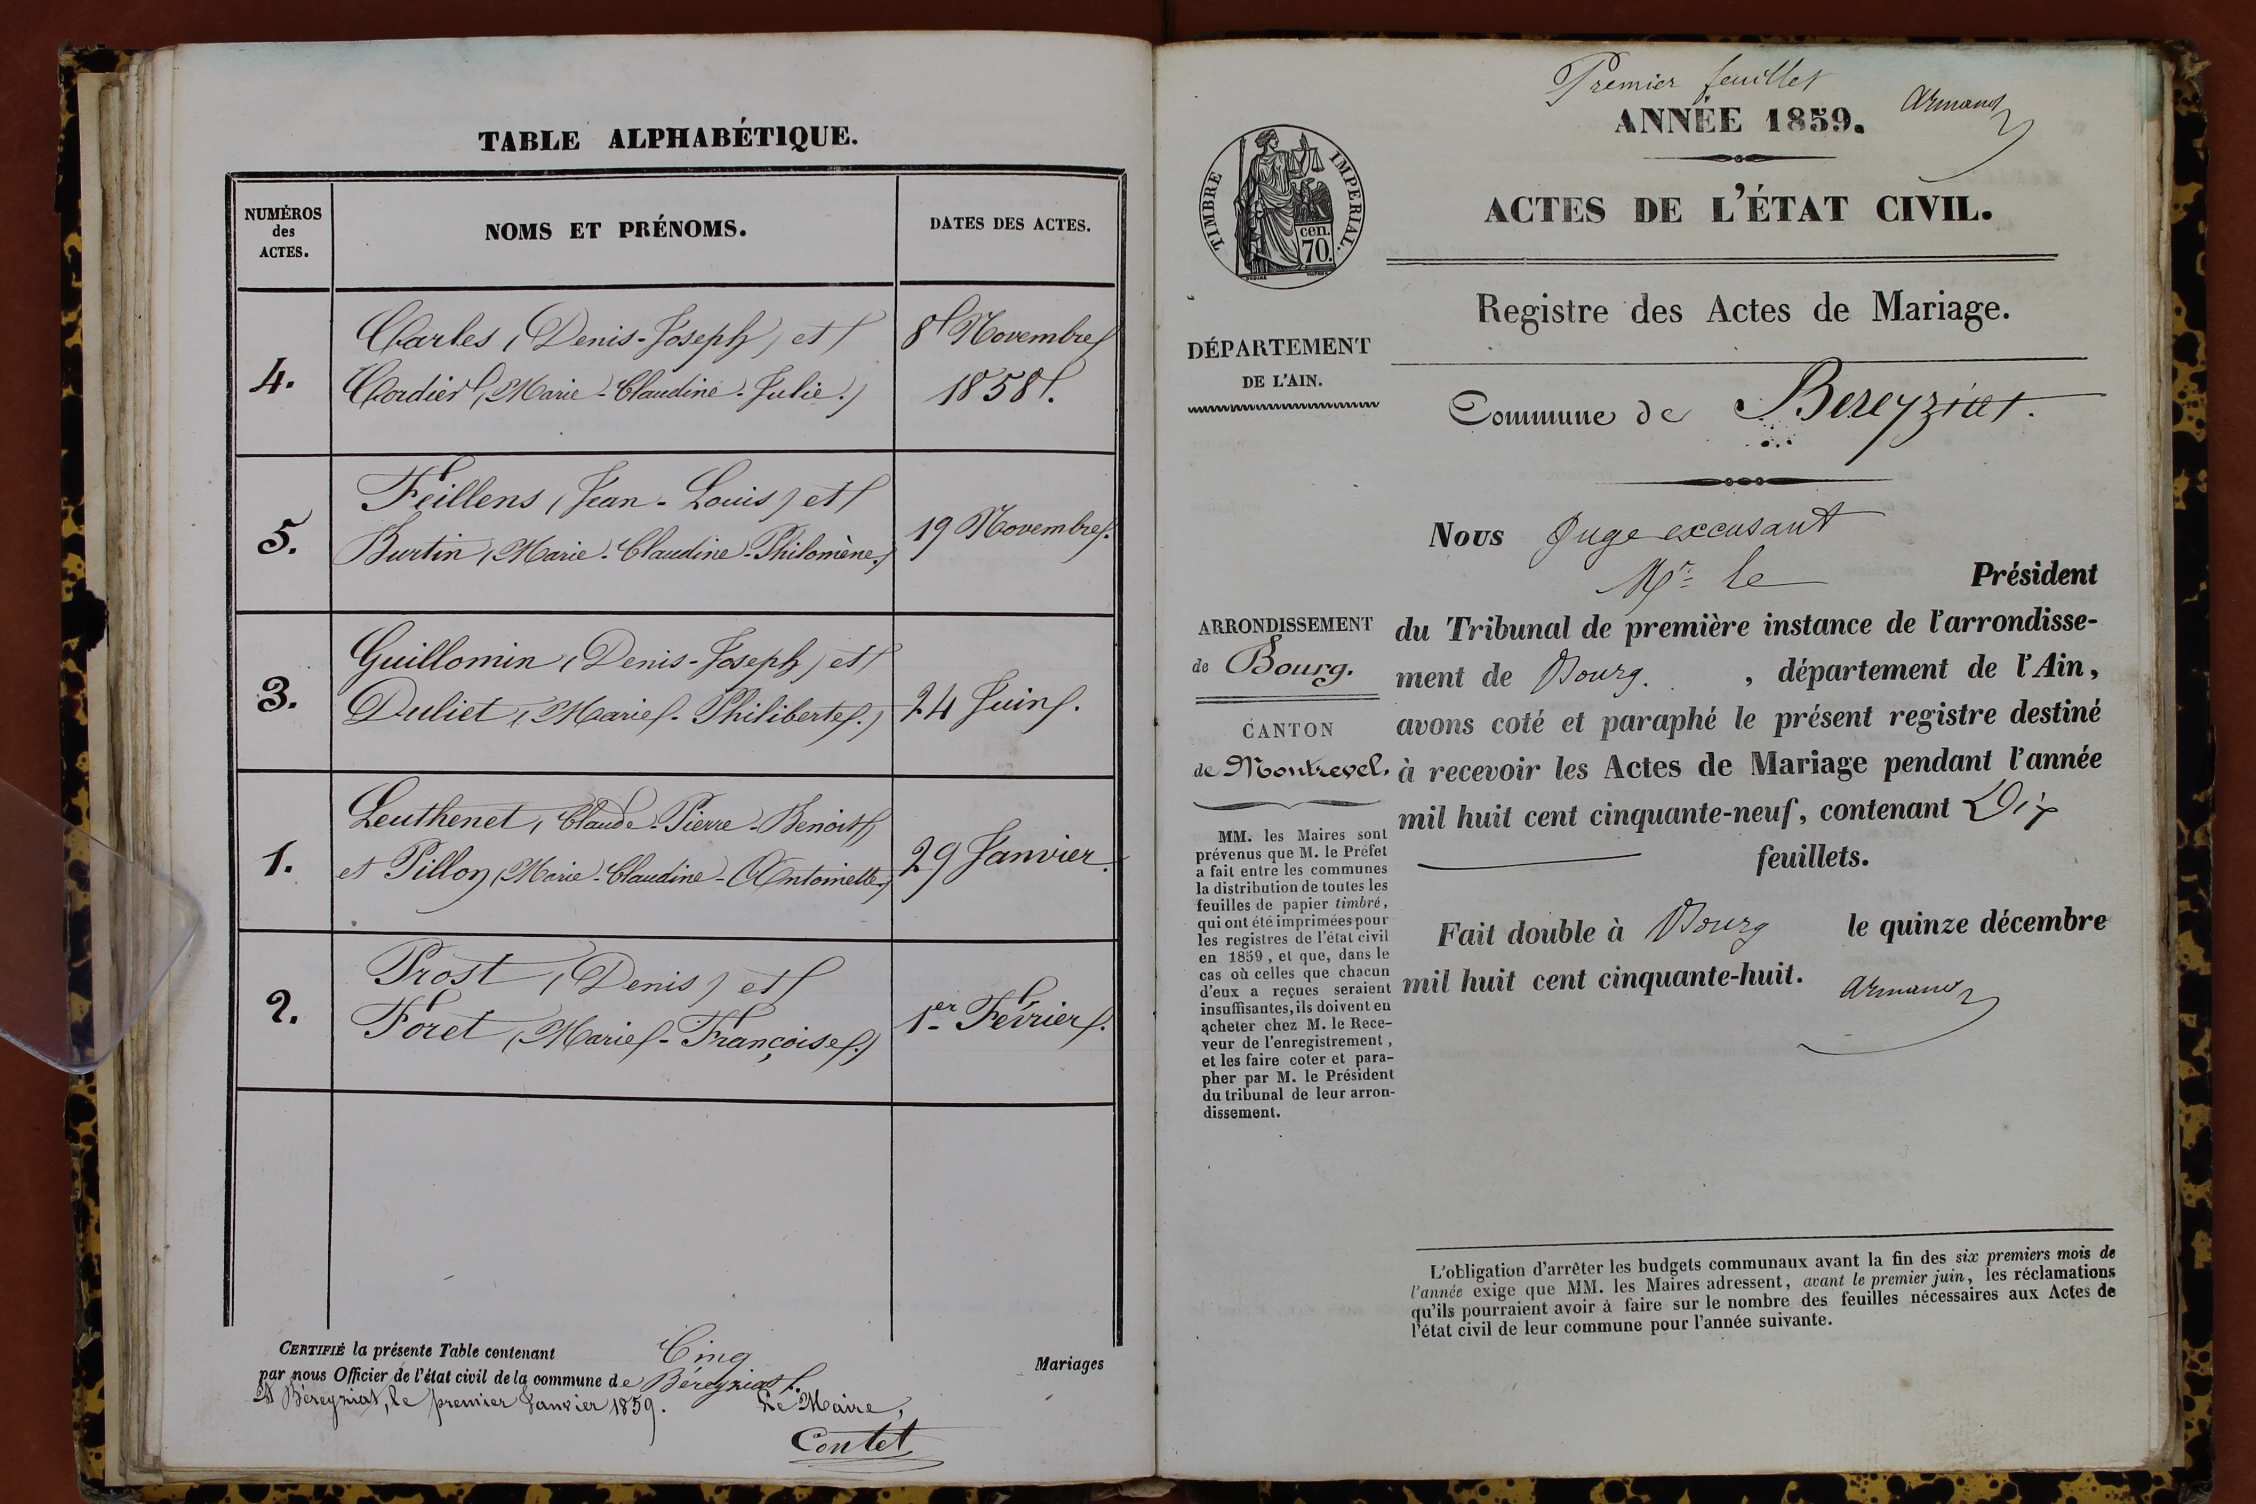 TABLE ALPHABÉTIQUE.
NUMÉROS
des
ACTES.
NOMS ET PRÉNOMS.
DATES DES ACTES.
4.
Carles (Denis-Joseph) et
Cordier (Marie-Claudine-Julie.)
8 Novembre
1858.
5.
Feillens (Jean-Louis) et
Burtin (Marie-Claudine-Philomène.)
19 Novembre.
3.
Guillomin (Denis-Joseph) et
Duliet (Marie-Philiberte.)
24 Juin.
1.
Leuthenet, Claude-Pierre-Benoit,
et Pillon (Marie-Claudine-Antoinette.)
29 Janvier.
2.
Prost (Denis) et
Foret (Marie-Françoise.)
1er Février.
CERTIFIÉ la présente Table contenant Cinq Mariages
par nous Officier de l'état civil de la commune de Béreyziat.
A Béreyziat, le premier Janvier 1859.
Le Maire,
Contet
Premier feuillet
Armand
ANNÉE 1859.
TIMBRE IMPERIAL.
cen.
70.
ACTES DE L'ÉTAT CIVIL.
Registre des Actes de Mariage.
DÉPARTEMENT
DE L'AIN.
Commune de Bereyziat.
Nous Juge excusant
Mr le Président
du Tribunal de première instance de l'arrondisse-
ment de Bourg. , département de l'Ain,
avons coté et paraphé le présent registre destiné
à recevoir les Actes de Mariage pendant l'année
mil huit cent cinquante-neuf, contenant Dix
feuillets.
Fait double à Bourg le quinze décembre
mil huit cent cinquante-huit.
Armand
ARRONDISSEMENT
de Bourg.
CANTON
de Montrevel.
MM. les Maires sont
prévenus que M. le Préfet
a fait entre les communes
la distribution de toutes les
feuilles de papier timbré,
qui ont été imprimées pour
les registres de l'état civil
en 1859, et que, dans le
cas où celles que chacun
d'eux a reçues seraient
insuffisantes, ils doivent en
acheter chez M. le Rece-
veur de l'enregistrement,
et les faire coter et para-
pher par M. le Président
du tribunal de leur arron-
dissement.
L'obligation d'arrêter les budgets communaux avant la fin des six premiers mois de
l'année exige que MM. les Maires adressent, avant le premier juin, les réclamations
qu'ils pourraient avoir à faire sur le nombre des feuilles nécessaires aux Actes de
l'état civil de leur commune pour l'année suivante.